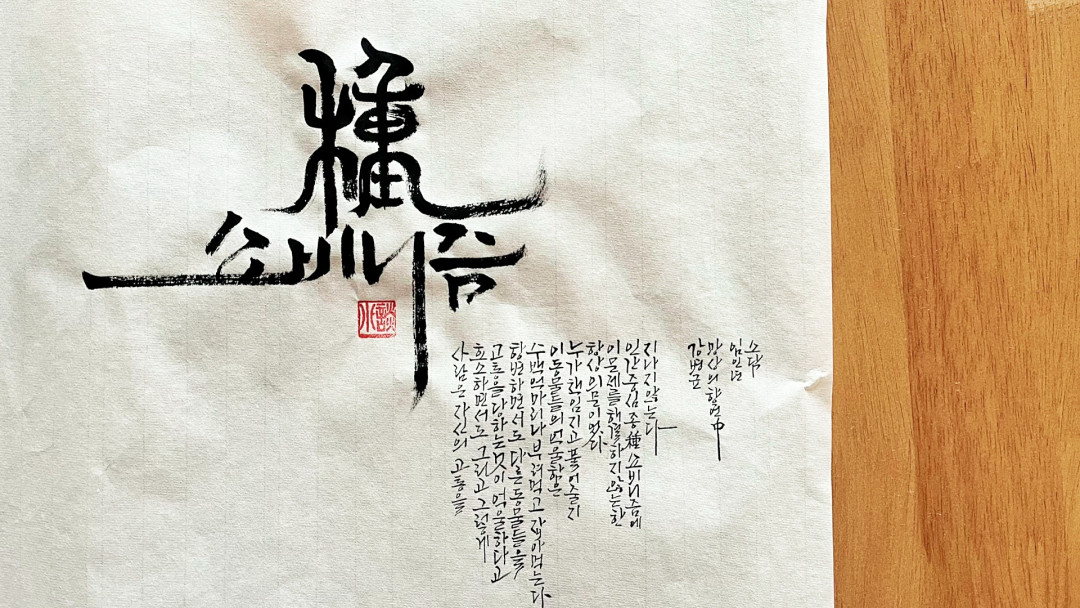 種
쇼비니즘
水談
사람은 자신의 고통을
호소하면서도 그리고 그렇게
고통을 당하는 것이 억울하다고
항변하면서도 다른 동물들을
수백억마리나 부려먹고 잡아먹는다
이 동물들의 억울함은
누가 책임지고 풀어줄지
항상 의문이었다
이 문제를 해결하지 않는 한
인간중심 종種 쇼비니즘에
지나지 않는다
강병균
망상의 향연 中
임인년
수담